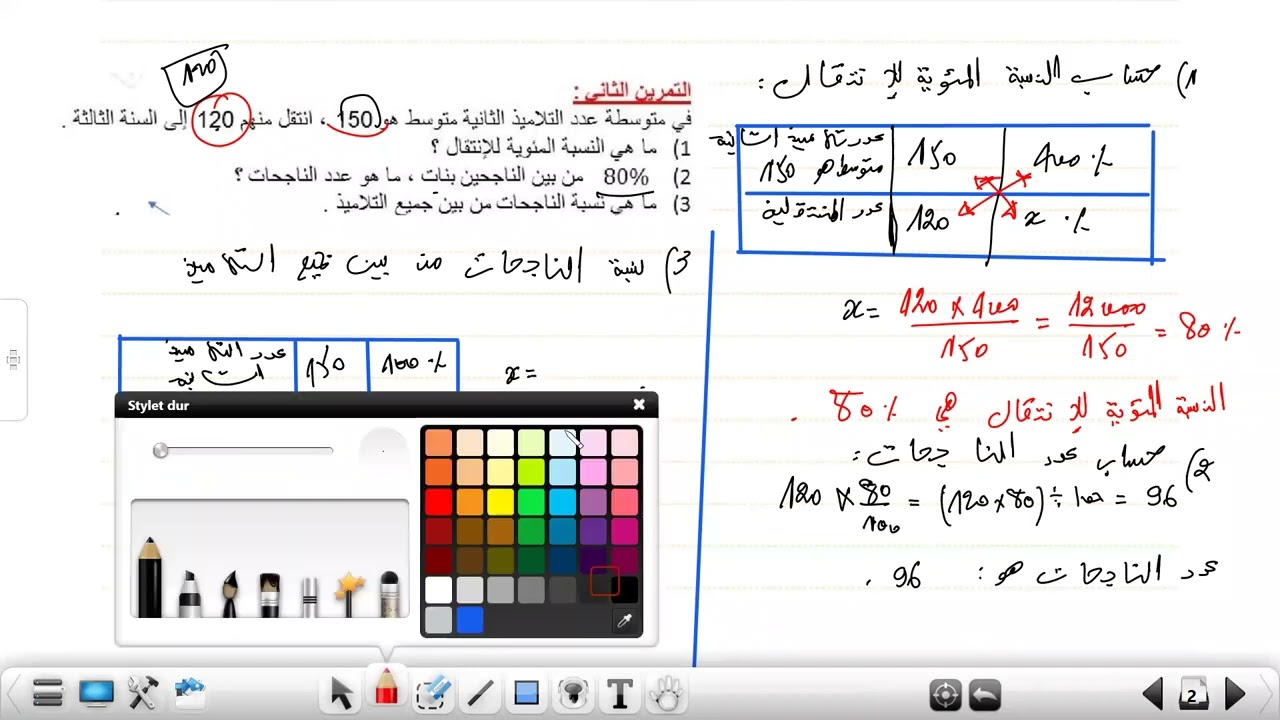 120
التمرين الثاني :
في متوسطة عدد التلاميذ الثانية متوسط هو 150 ، انتقل منهم 120 إلى السنة الثالثة .
1) ما هي النسبة المئوية للإنتقال ؟
2) 80% من بين الناجحين بنات ، ما هو عدد الناجحات ؟
3) ما هي نسبة الناجحات من بين جميع التلاميذ .
3) نسبة الناجحات من بين جميع التلاميذ
عدد التلاميذ الثانية 150 100 %
x =
1) حساب النسبة المئوية للإنتقال :
عدد تلاميذ الثانية متوسط هو 150 150 100 %
عدد المنتقلين 120 x %
x = 120 x 100 / 150 = 12000 / 150 = 80 %
النسبة المئوية للإنتقال هي 80 % .
2) حساب عدد الناجحات :
120 x 80/100 = (120 x 80) ÷ 100 = 96
عدد الناجحات هو : 96 .
Stylet dur
2